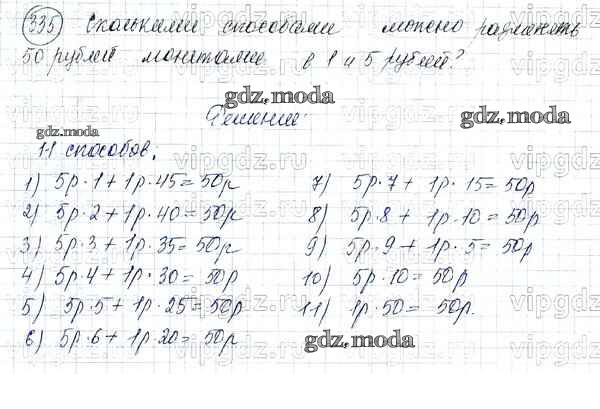 335 Сколькими способами можно разменять
50 рублей монетами в 1 и 5 рублей?
gdz.moda
Решение:
gdz.moda
gdz.moda
11 способов:
1) 5р·1 + 1р·45 = 50р
2) 5р·2 + 1р·40 = 50р
3) 5р·3 + 1р·35 = 50р
4) 5р·4 + 1р·30 = 50р
5) 5р·5 + 1р·25 = 50р
6) 5р·6 + 1р·20 = 50р
7) 5р·7 + 1р·15 = 50р
8) 5р·8 + 1р·10 = 50р
9) 5р·9 + 1р·5 = 50р
10) 5р·10 = 50р
11) 1р·50 = 50р.
gdz.moda
vipgdz.ru